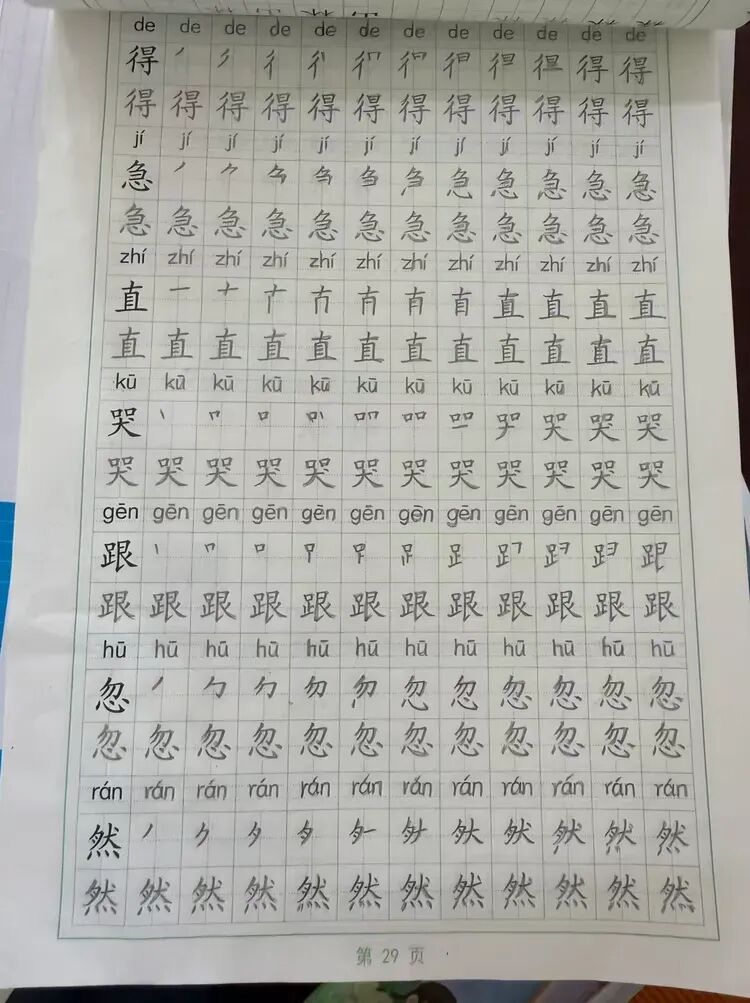 de de de de de de de de de de de de
得 丿 彳 得 得
得 得 得 得 得 得 得 得 得 得 得 得
jí jí jí jí jí jí jí jí jí jí jí jí
急 丿 刍 急 急 急 急
急 急 急 急 急 急 急 急 急 急 急 急
zhí zhí zhí zhí zhí zhí zhí zhí zhí zhí zhí zhí
直 一 十 直 直 直 直
直 直 直 直 直 直 直 直 直 直 直 直
kū kū kū kū kū kū kū kū kū kū kū kū
哭 丶 口 吅 哭 哭 哭
哭 哭 哭 哭 哭 哭 哭 哭 哭 哭 哭 哭
gēn gēn gēn gēn gēn gēn gēn gēn gēn gēn gēn gēn
跟 丶 口
跟 跟 跟 跟 跟 跟 跟 跟 跟 跟 跟 跟
hū hū hū hū hū hū hū hū hū hū hū hū
忽 丿 勹 勿 忽 忽 忽 忽
忽 忽 忽 忽 忽 忽 忽 忽 忽 忽 忽 忽
rán rán rán rán rán rán rán rán rán rán rán rán
然 丿 然
然 然 然 然 然 然 然 然 然 然 然 然
第 29 页